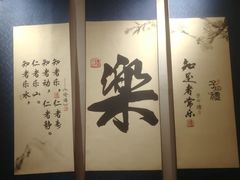 知者乐水，
仁者乐山。
知者动，仁者静。
知者乐，仁者寿
樂
知足者常乐